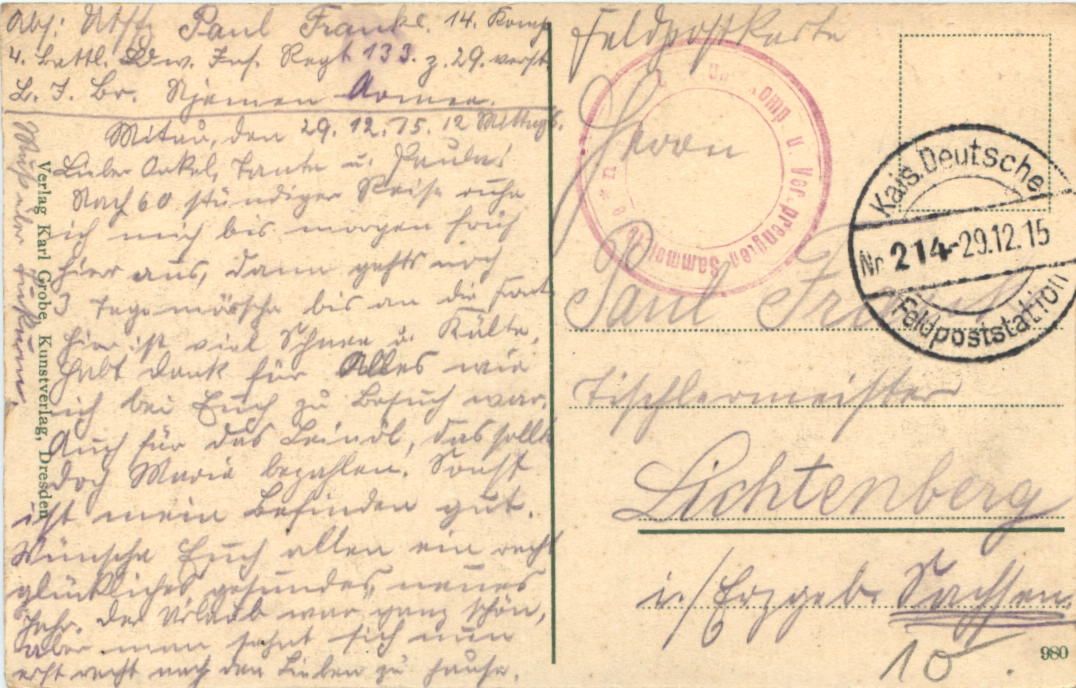 Abs: Utffz. Paul Franke. 14. Komp
4. Battl. Ldw. Inf. Regt 133. z. 29. verst.
L. I. Br. Njemen Armee.
Mitau, den 29.12.15. 12 Mittags.
Lieber Onkel, Tante u. Paula!
Nach 60 stündiger Reise ruhe
ich mich bis morgen früh
hier aus, dann gehts noch
3 Tagemärsche bis an die Front
hier ist viel Schnee u. Kälte.
Habt Dank für Alles wie
ich bei Euch zu Besuch war.
Auch für das Leinöl, das sollte
doch Marie bezahlen. Sonst
ist mein Befinden gut.
Wünsche Euch allen ein recht
glückliches gesundes neues
Jahr. Der Urlaub war ganz schön,
aber man sehnt sich nun
erst recht nach den Lieben zu Hause.
Verlag Karl Grobe, Kunstverlag, Dresden
Feldpostkarte
Herrn
Paul Franke
Tischlermeister
Lichtenberg
i./Erzgeb. Sachsen
10
980
u. Versprengten Sammelste
Kais. Deutsche
Nr. 214 - 29.12.15
Feldpoststation